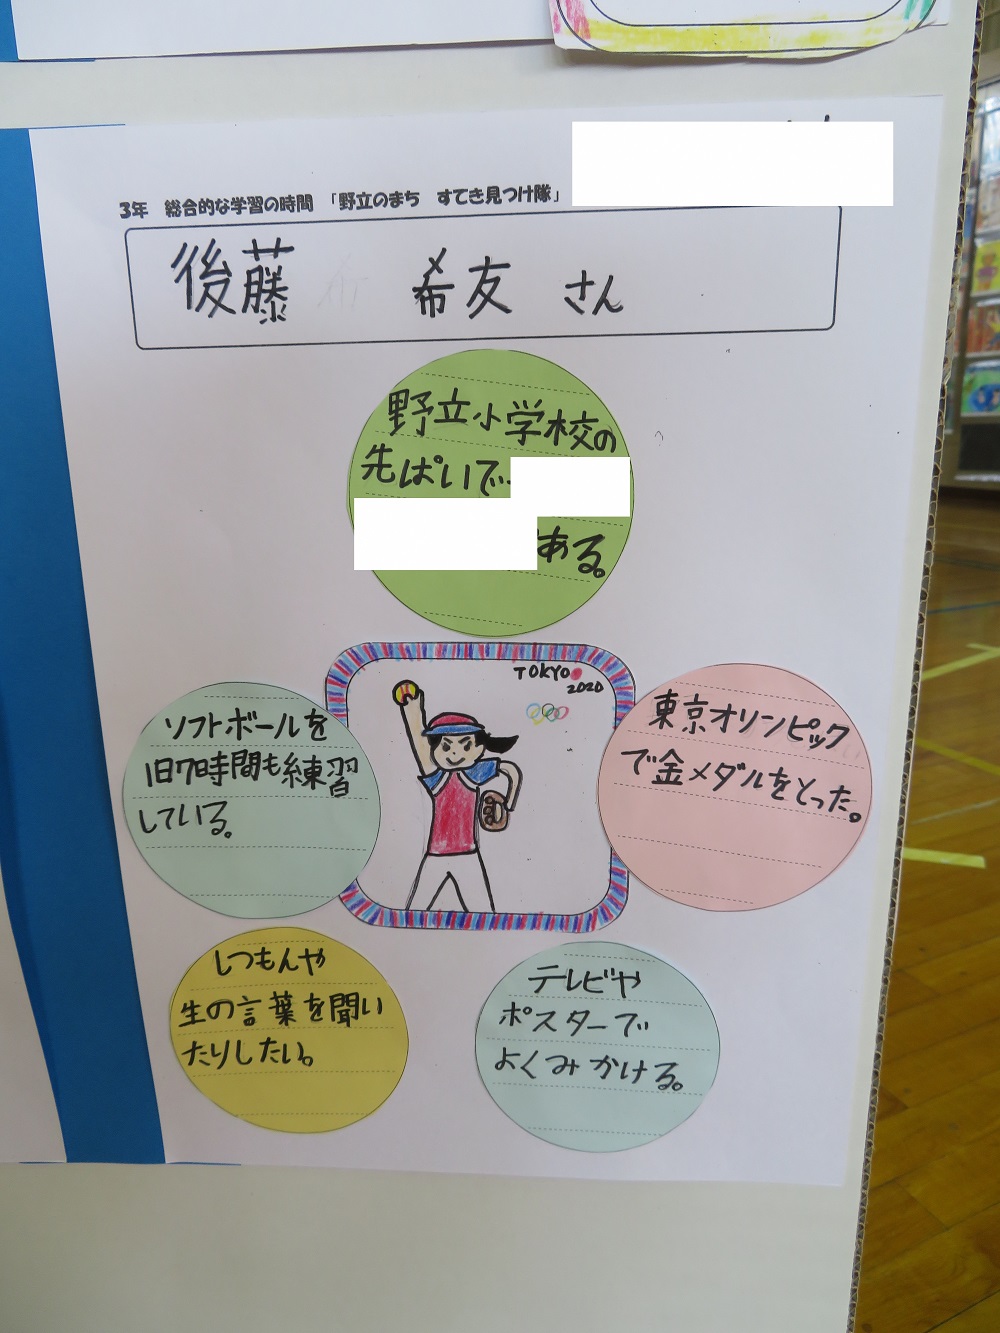 3年 総合的な学習の時間 「野立のまち すてき見つけ隊」
後藤 希友 さん
野立小学校の
先ぱいで
ある。
TOKYO
2020
ソフトボールを
1日7時間も練習
している。
東京オリンピック
で金メダルをとった。
しつもんや
生の言葉を聞い
たりしたい。
テレビや
ポスターで
よくみかける。